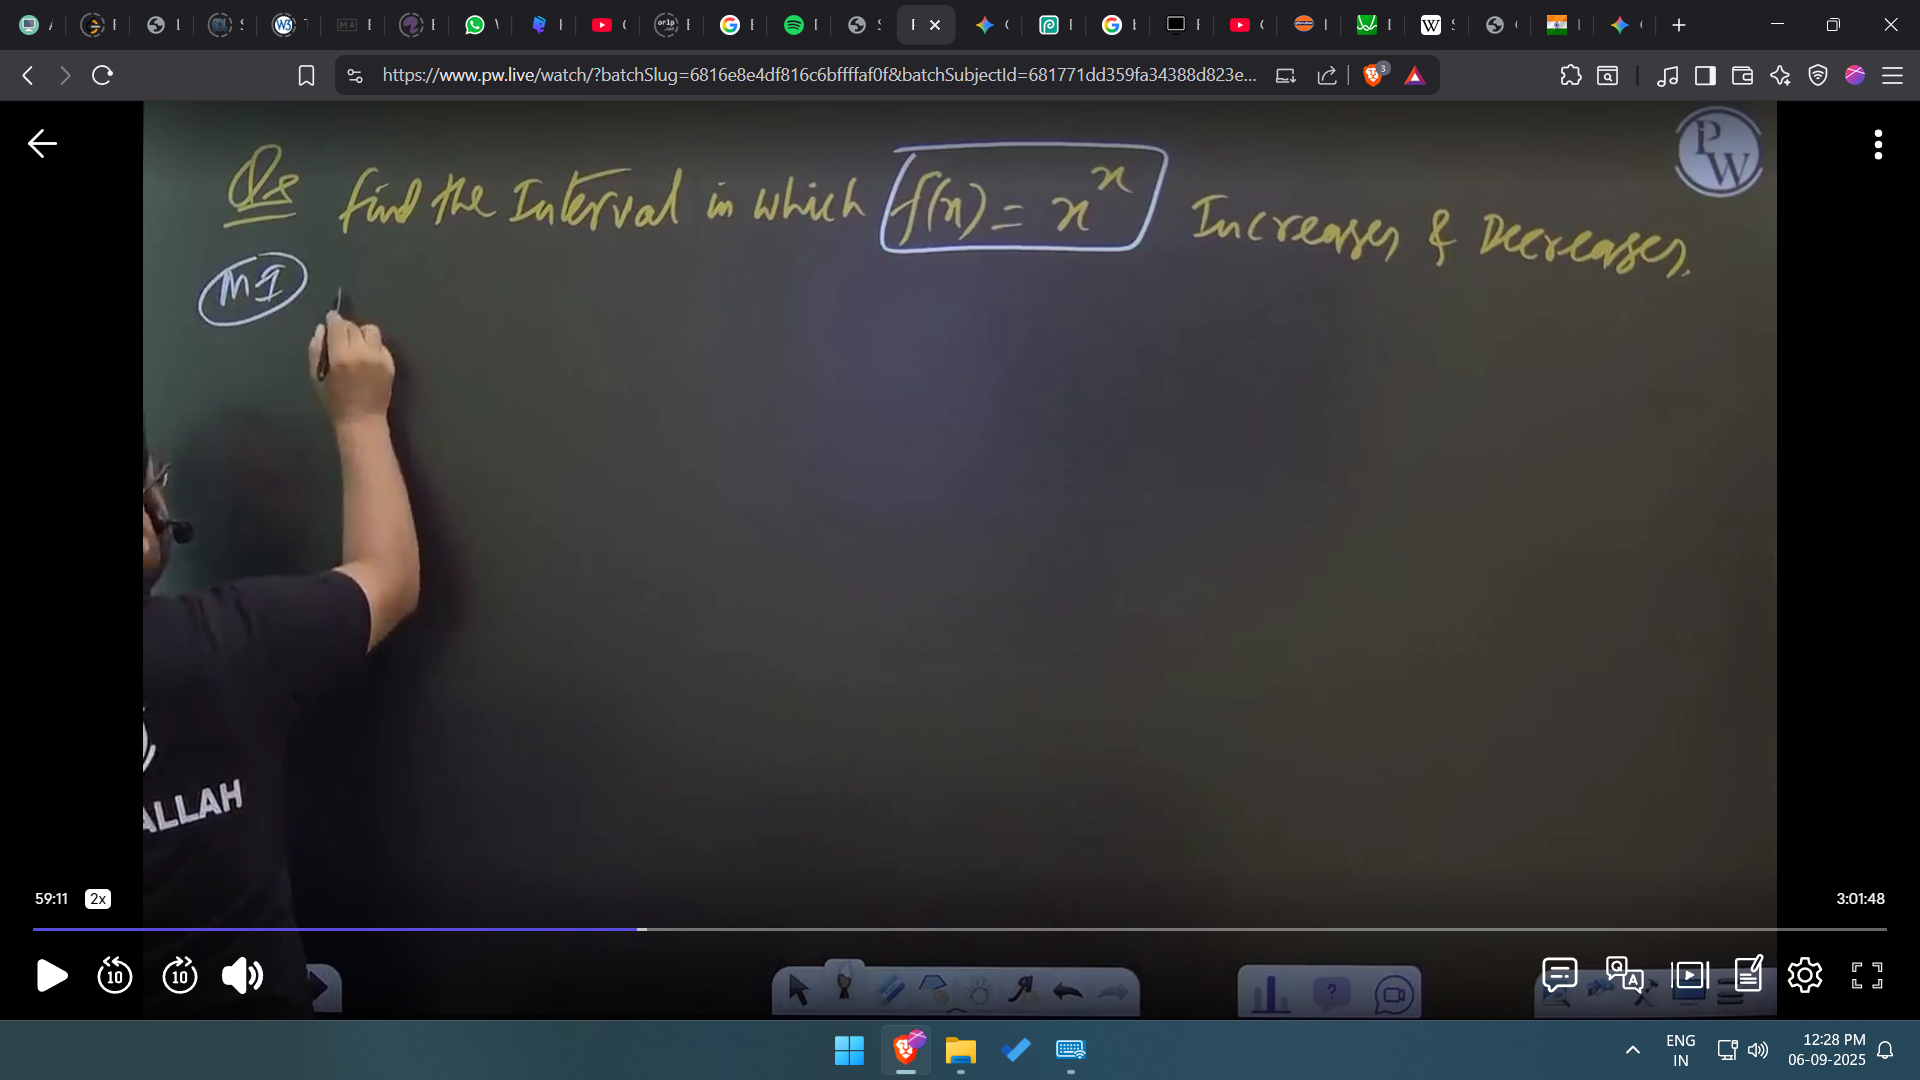 https://www.pw.live/watch/?batchSlug=6816e8e4df816c6bffffaf0f&batchSubjectId=681771dd359fa34388d823e...
3
PW
Qs find the Interval in which f(x) = x^x Increases & Decreases.
M1
ALLAH
59:11 2x 3:01:48
10 10
ENG 12:28 PM
IN 06-09-2025